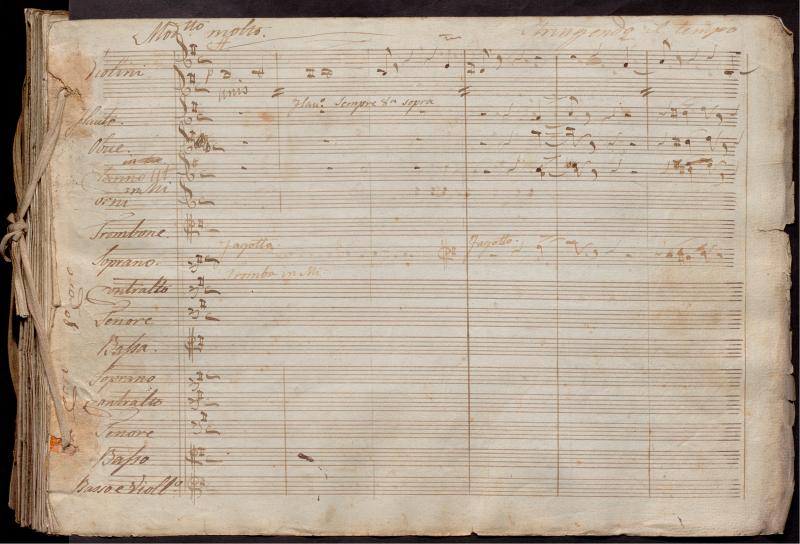 Mod.tto molto. Stringendo il tempo
Violini
unis
Flau.o Sempre 8.a sopra
Flauto.
Oboe.
in Mi
Corni
Trombone.
Fagotto.
Fagotto.
Soprano.
Tromba in Mi
Contralto
Tenore
Basso.
Soprano
Contralto
Tenore
Basso
Basso e Viol.lo